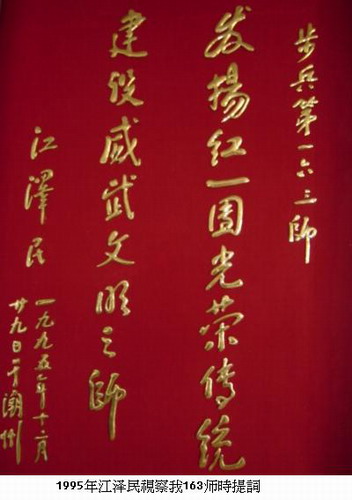 步兵第一六三師
发揚红一團光荣傳統
建设威武文明之師
江澤民
一九九五年十二月
廿九日于潮州
1995年江泽民視察我163师時提詞